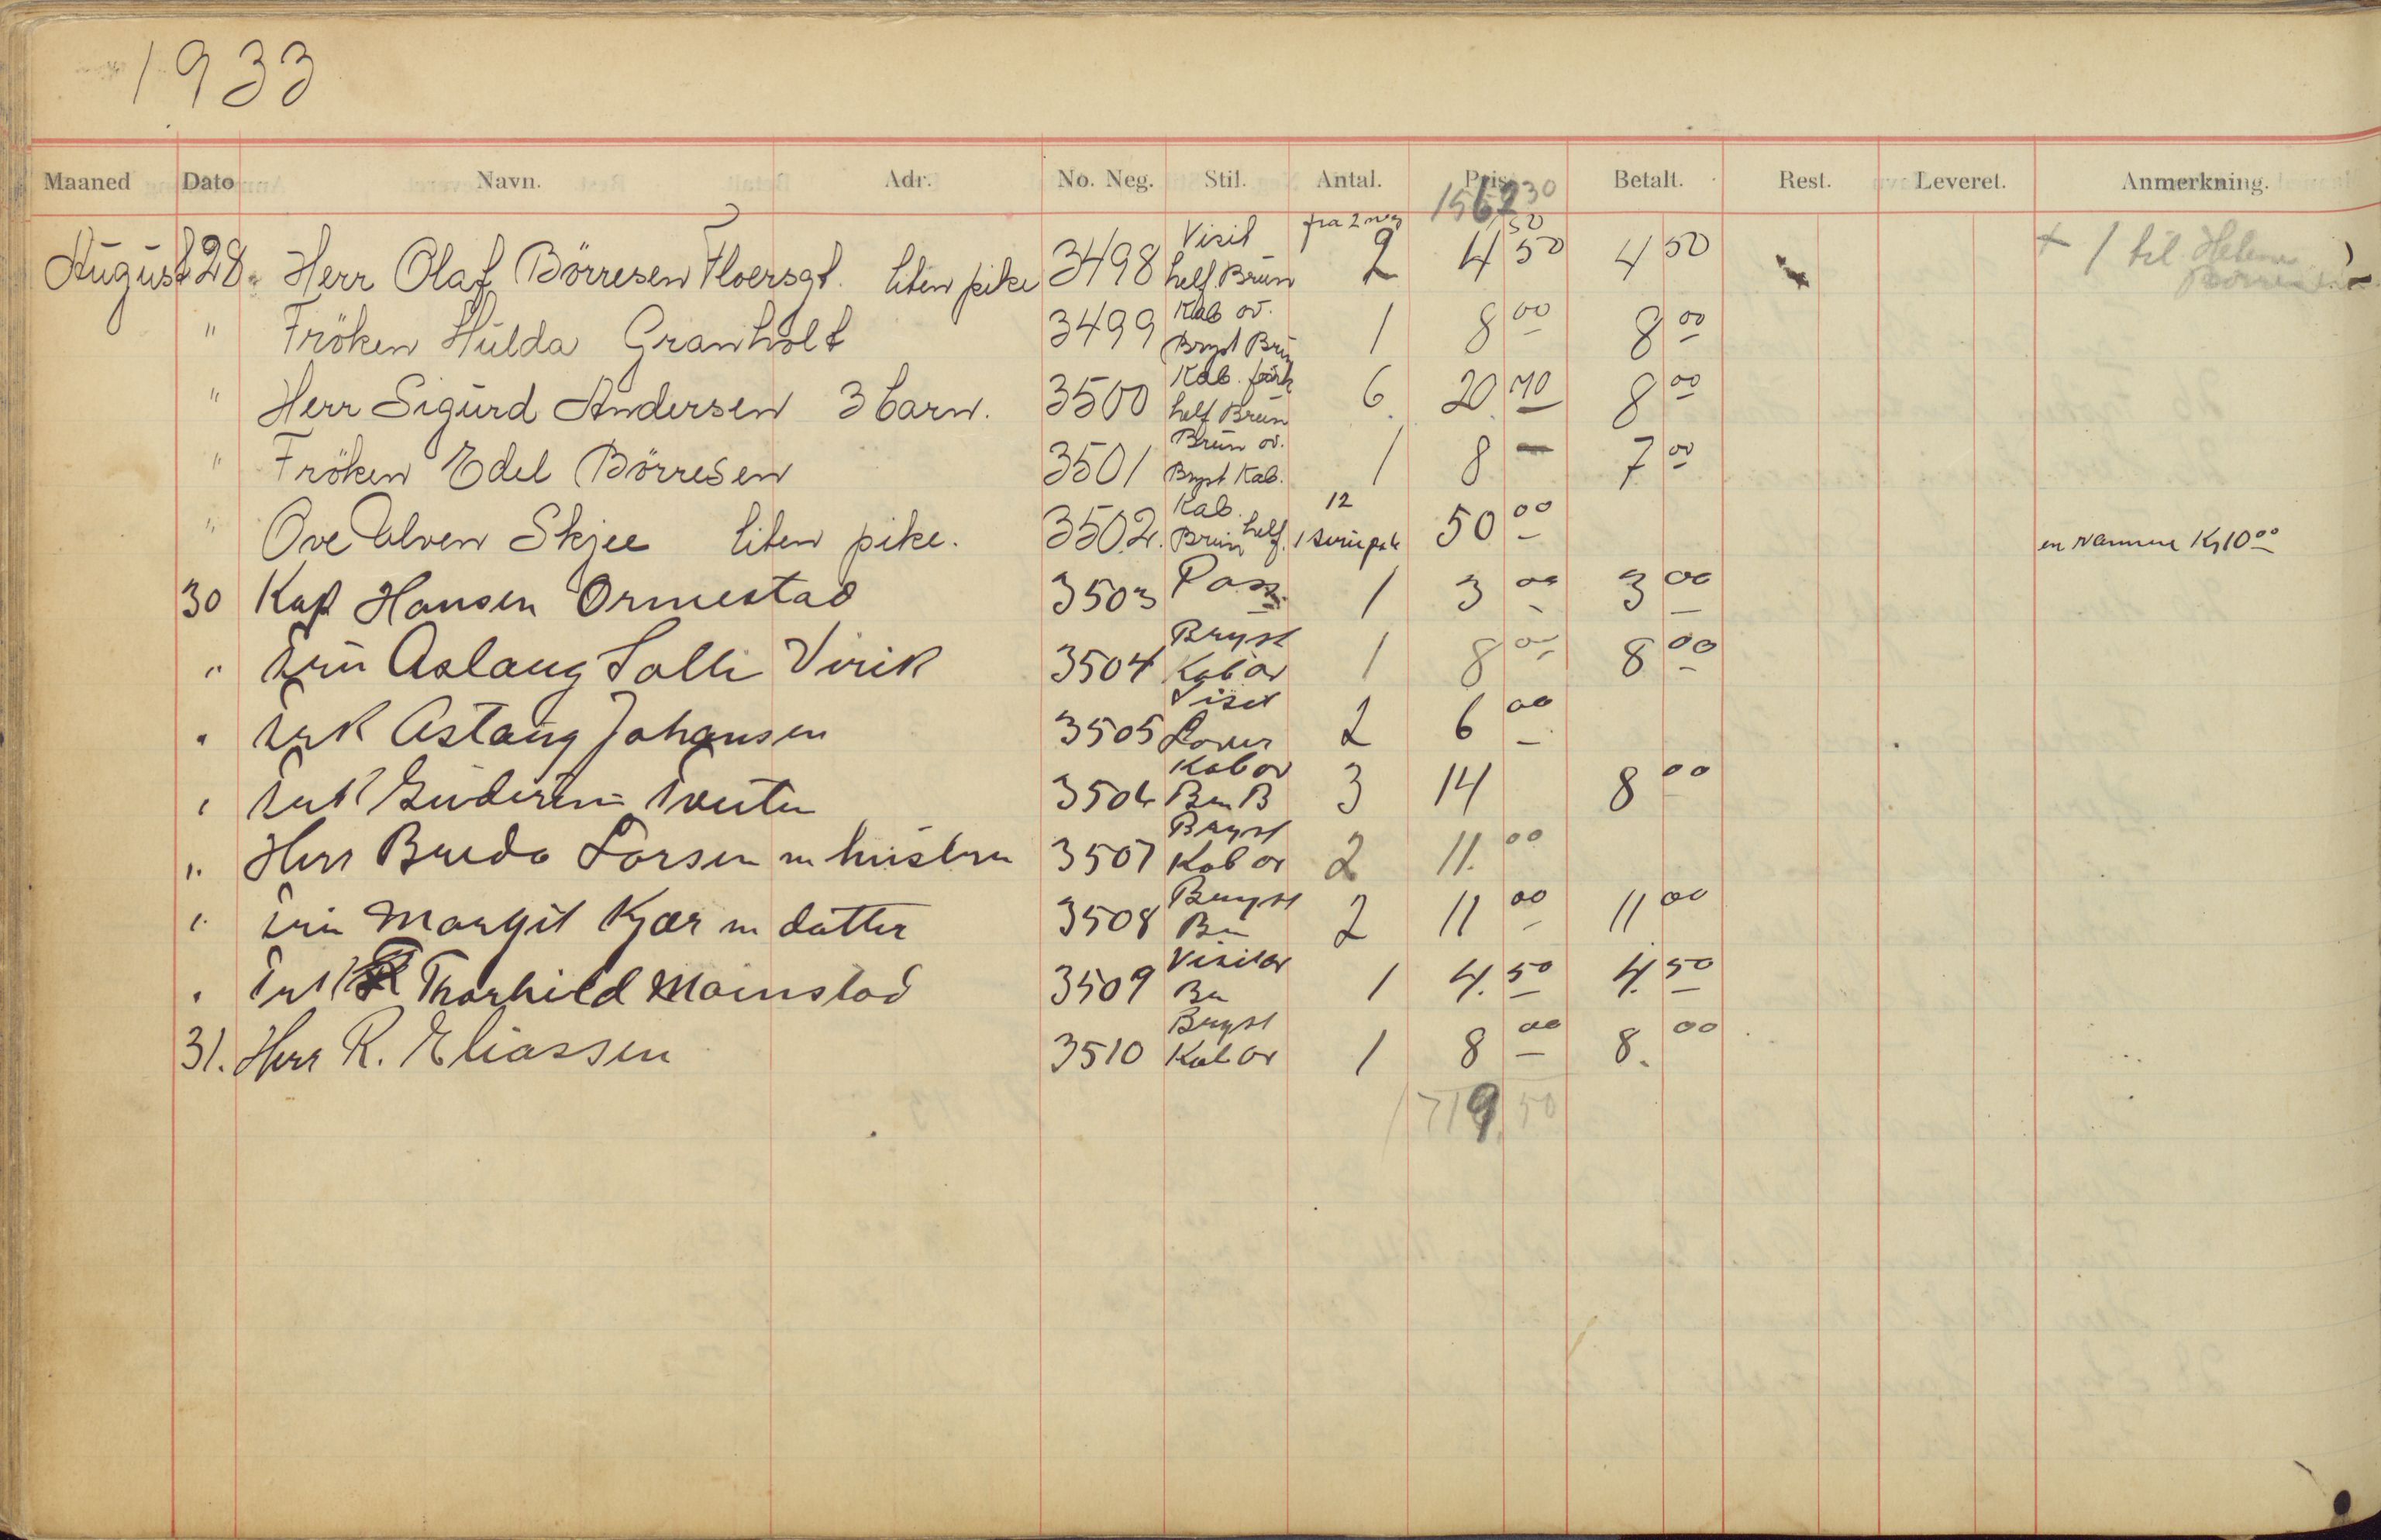 1933
Maaned Dato Navn. Adr. No. Neg. Stil. Antal. Pris. Betalt. Rest. Leveret. Anmerkning.
1562 30
August 28. Herr Olaf Börresen Floersgt. liten pike 3498 Visit helf Brun fra 2 neg 2 4 50 4 50 + 1 til Helene Börresen
" Fröken Hulda Granholt 3499 Kab ov. Bryst Brun 1 8 00 8 00
" Herr Sigurd Andersen 3 barn. 3500 Kab. helf Brun 6. 20. 70 8 00
" Fröken Edel Börresen 3501 Brun ov. Bryst Kab. 1 8 — 7 00
" Ove Alven Skjee liten pike. 3502. Kab. Brun helf. 12 1 50 00 en ramme Kr 10 00
30 Kapt Hansen Ormestad 3503 Pass. 1 3 00 3 00
" Fru Aslaug Solli Virik 3504 Bryst Kab ov 1 8 00 8 00
" Frk Astaug Johansen 3505 Visit 2 6 00
" Frk Tveten 3506 Kab ov Bru B 3 14 8 00
" Herr Larsen m hustru 3507 Bryst Kab ov 2 11. 00
" Fru Margit Kjær m datter 3508 Bryst Bru 2 11 00 11 00
" Frk Thorhild 3509 Visit ov Bru 1 4. 50 4. 50
31. Herr R. Eliassen 3510 Bryst Kab ov 1 8 00 8. 00
1719. 50